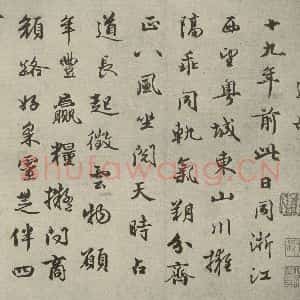 十九年前此日同浙江
西望粤城東山川擁
隔乖同軌氣朔分齊
正八風坐閱天時占
道長起徵雲物願
年豐贏糧擬問商
顏路好采靈芝伴四
Shufawang.CN